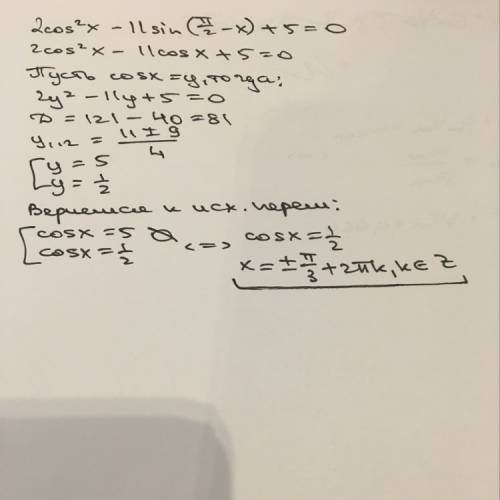 2cos²x - 11sin(π/2 - x) + 5 = 0
2cos²x - 11cosx + 5 = 0
Пусть cosx = y, тогда:
2y² - 11y + 5 = 0
D = 121 - 40 = 81
y₁,₂ = (11 ± 9)/4
[ y = 5
y = 1/2
Вернемся к исх. перем:
[ cosx = 5 ∅
cosx = 1/2 <=> cosx = 1/2
x = ± π/3 + 2πk, k ∈ Z